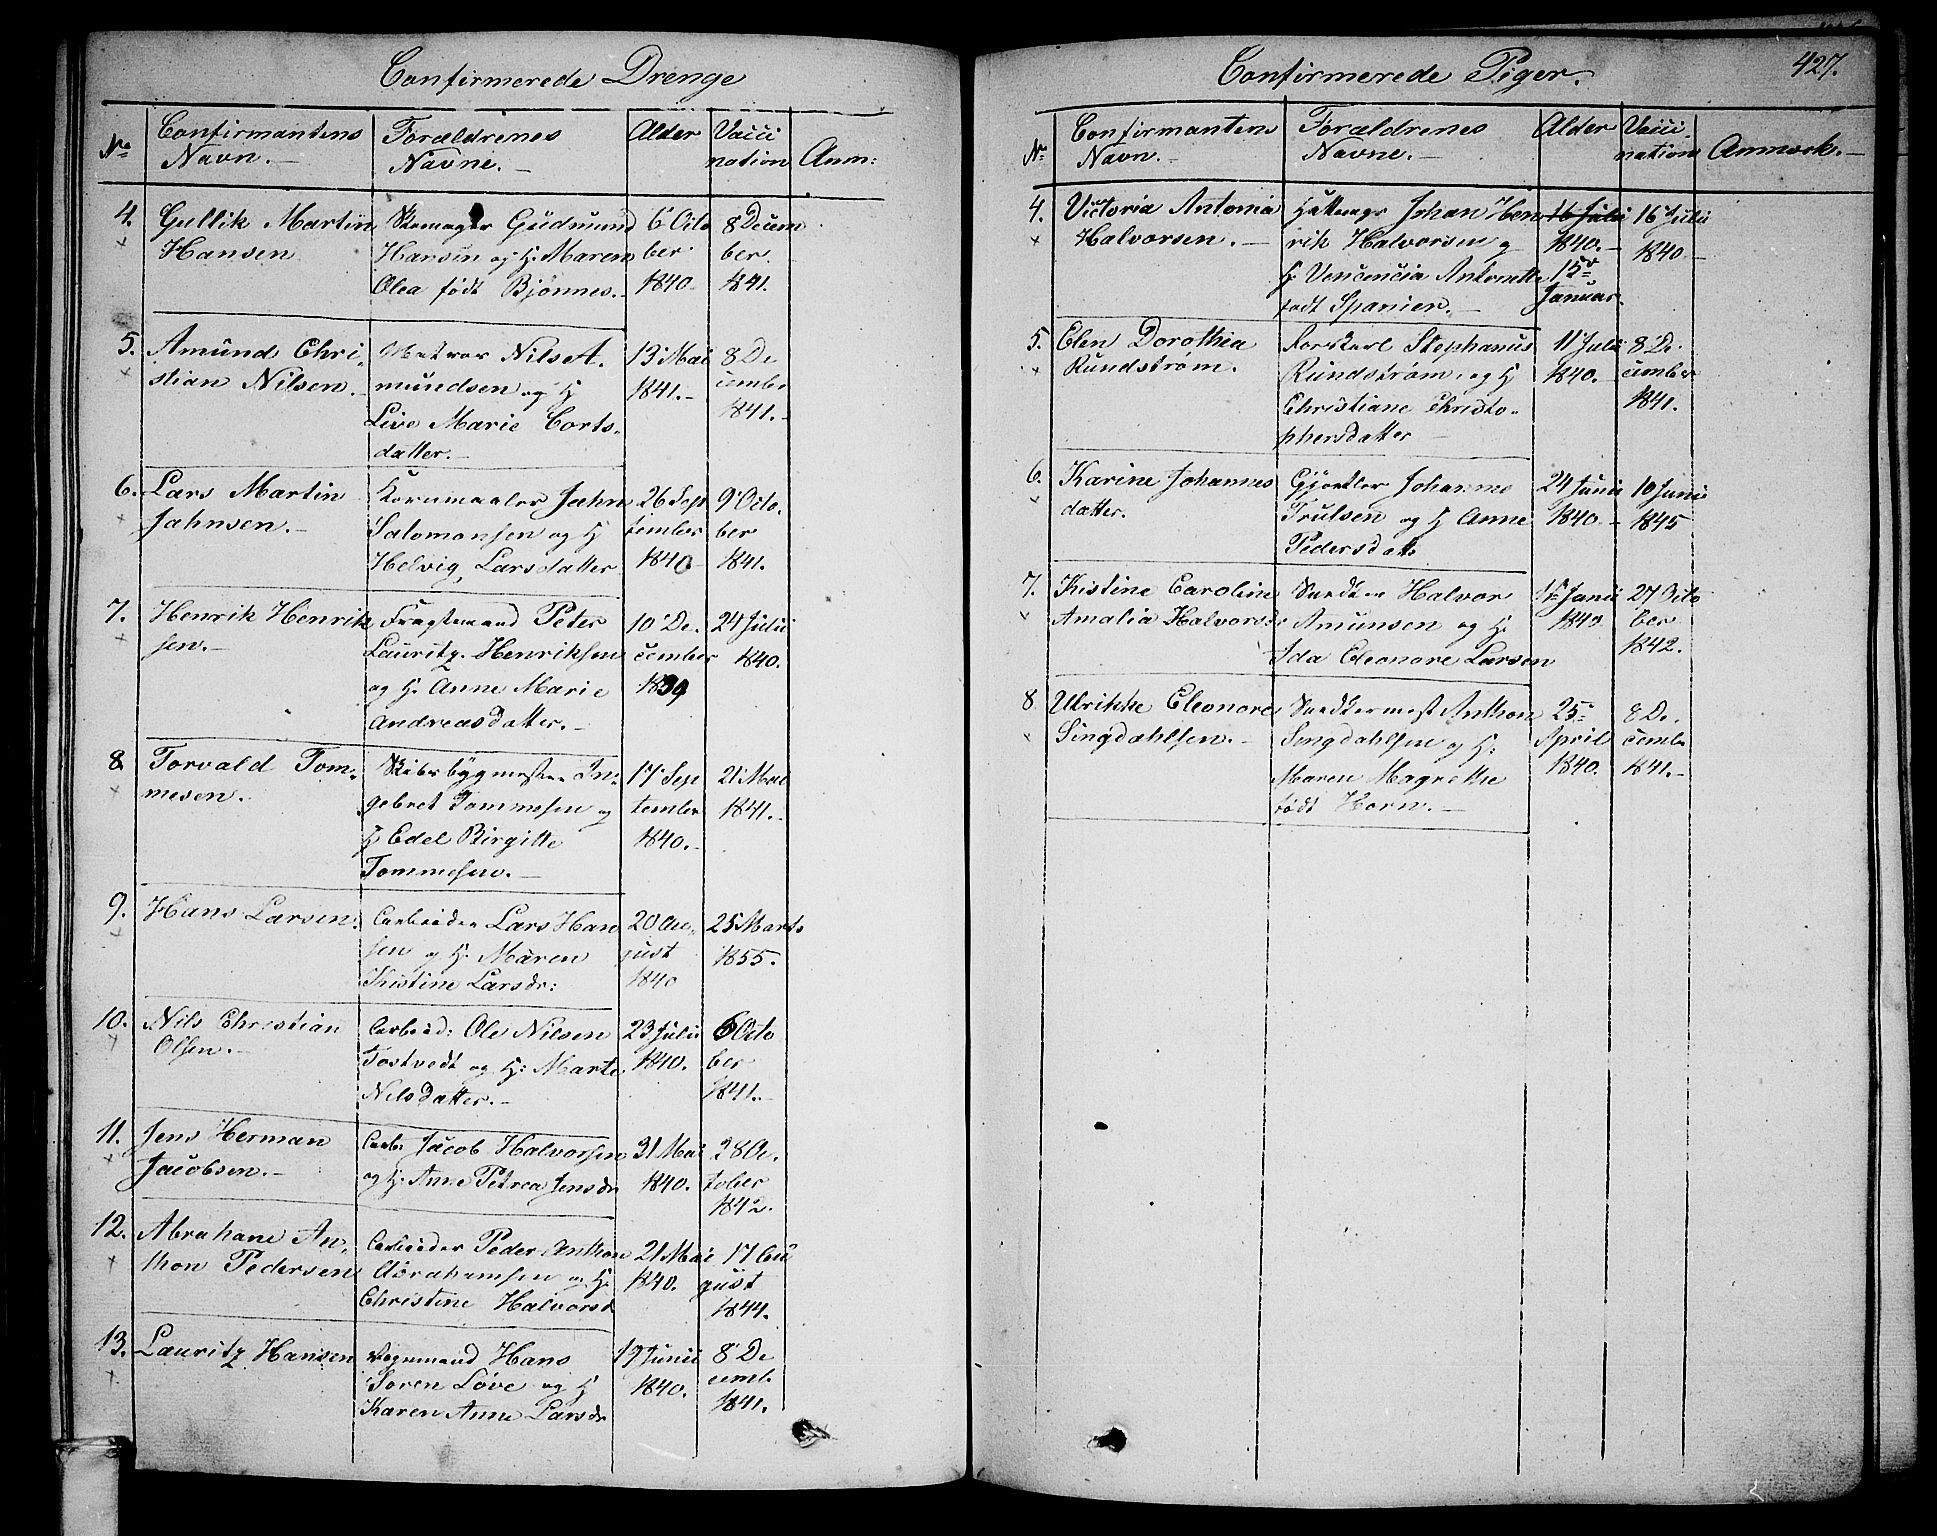 Confirmerede Drenge
No
Confirmantens Navn.
Forældrenes Navne.
Alder
Vacci nation
Anm:
4.
Gullik Martin
Hansen
Skomager Gudmund
Hansen og H. Maren
Olea født Bjønnes.
6 Octo
ber
1840
8 Decem
ber.
1841.
5.
Amund Chri-
stian Nilsen.
Matros Nils A.
mundsen og H
Live Marie Corts-
datter.
13 Mai
1841.
8 De
cember
1841.
6.
Lars Martin
Jahnsen.
Kornmaaler Jahn
Salomonsen og H
Helvig Larsdatter
26 Sep
tember
1840
9 Octo.
ber
1841.
7.
Henrik Henrik
sen.
Fragtemand Peter
Lauritz. Henriksen
og H. Anne Marie
Andreasdatter.
10 De.
cember
1839
24 Julii
1840.
8.
Torvald Tom-
mesen.
Skibsbygmester In-
gebret Tommesen og
H Edel Birgitte
Tommesen.
17 Sep
tember
1840.
21 Mai
1841.
9.
Hans Larsen.
Arbeider Lars Han
sen og H. Maren
Kristine Larsdr:
20 Au-
gust
1840
25 Marts
1855.
10.
Nils Christian
Olsen.
Arbeid: Ole Nilsen
Tostvedt og H: Marte
Nilsdatter.
23 Julii
1840.
6 Octo
ber
1841.
11.
Jens Herman
Jacobsen.
Arb: Jacob Halvorsen
og H. Anne Petrea Jensdr
31 Mai
1840.
28 Oc.
tober
1842.
12.
Abrahane An-
thon Pedersen
Arbeider Peder Anthon
Abrahamsen og H.
Christine Halvorsd
21 Mai
1840.
17 Au
gust
1844.
13.
Lauritz Hansen
Vognmand Hans
Soren Løve og H
Karen Anne Larsdr
19 Junii
1840.
8 De
cemb.
1841.
Confirmerede Piger.
427.
No
Confirmantens Navn.
Forældrenes Navne.
Alder
Vacci. nation
Anmærk.
4.
Victoria Antonia
Halvorsen.
Johan Hen
rik Halvorsen og
H Vencencia Antonette
født Spanien.
16 Julii
1840.
15de
Januar.
16 Julii
1840.
5.
Elen Dorothea
Rundstrøm.
Rorskarl Stephanus
Rundstrøm. og H
Christiane Christo-
phersdatter
11 Julii
1840.
8 De.
cember
1841.
6.
Karine Johannes
datter.
Gjørtler Johannes
Trulsen og H Anne
Pedersdatt.
24 Junii
1840.
10 Junii
1845
7.
Kistine Caroline
Amalia Halvorsd:
Snedker Halvor
Amunsen og H.
Ida Eleonore Larsen
Junii
1840
27 Octo
ber
1842.
8
Ulrikke Eleonore
Singdahlsen.
Snedkermest Anthon
Singdahlsen og H:
Maren Magrethe
født Horn.
25de
April
1840.
8 De.
cemb.
1841.